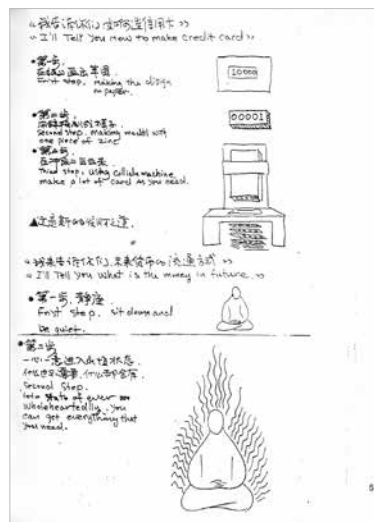 «我告诉你们如何造信用卡»
«I'll Tell You How to make credit card»
●第一步.
在纸上画出草图
First step, making the design
on paper.
10000
●第二步.
用锌板制成模子
Second step. making model with
one piece of zinc
00001
●第三步.
在冲压机
Third step, using collide machine,
make a lot of card as you need.
▲
«我来告诉你们,未来货币的流通方式»
«I'll Tell You what is the money in future.»
●第一步.静座.
First step. sit down and
be quiet.
●第二步.
一心一意进入此境状态
什么也不需要,什么都会有
Second Step.
Into state of quiet
wholeheartedly. you
can get everything that
you need.
5